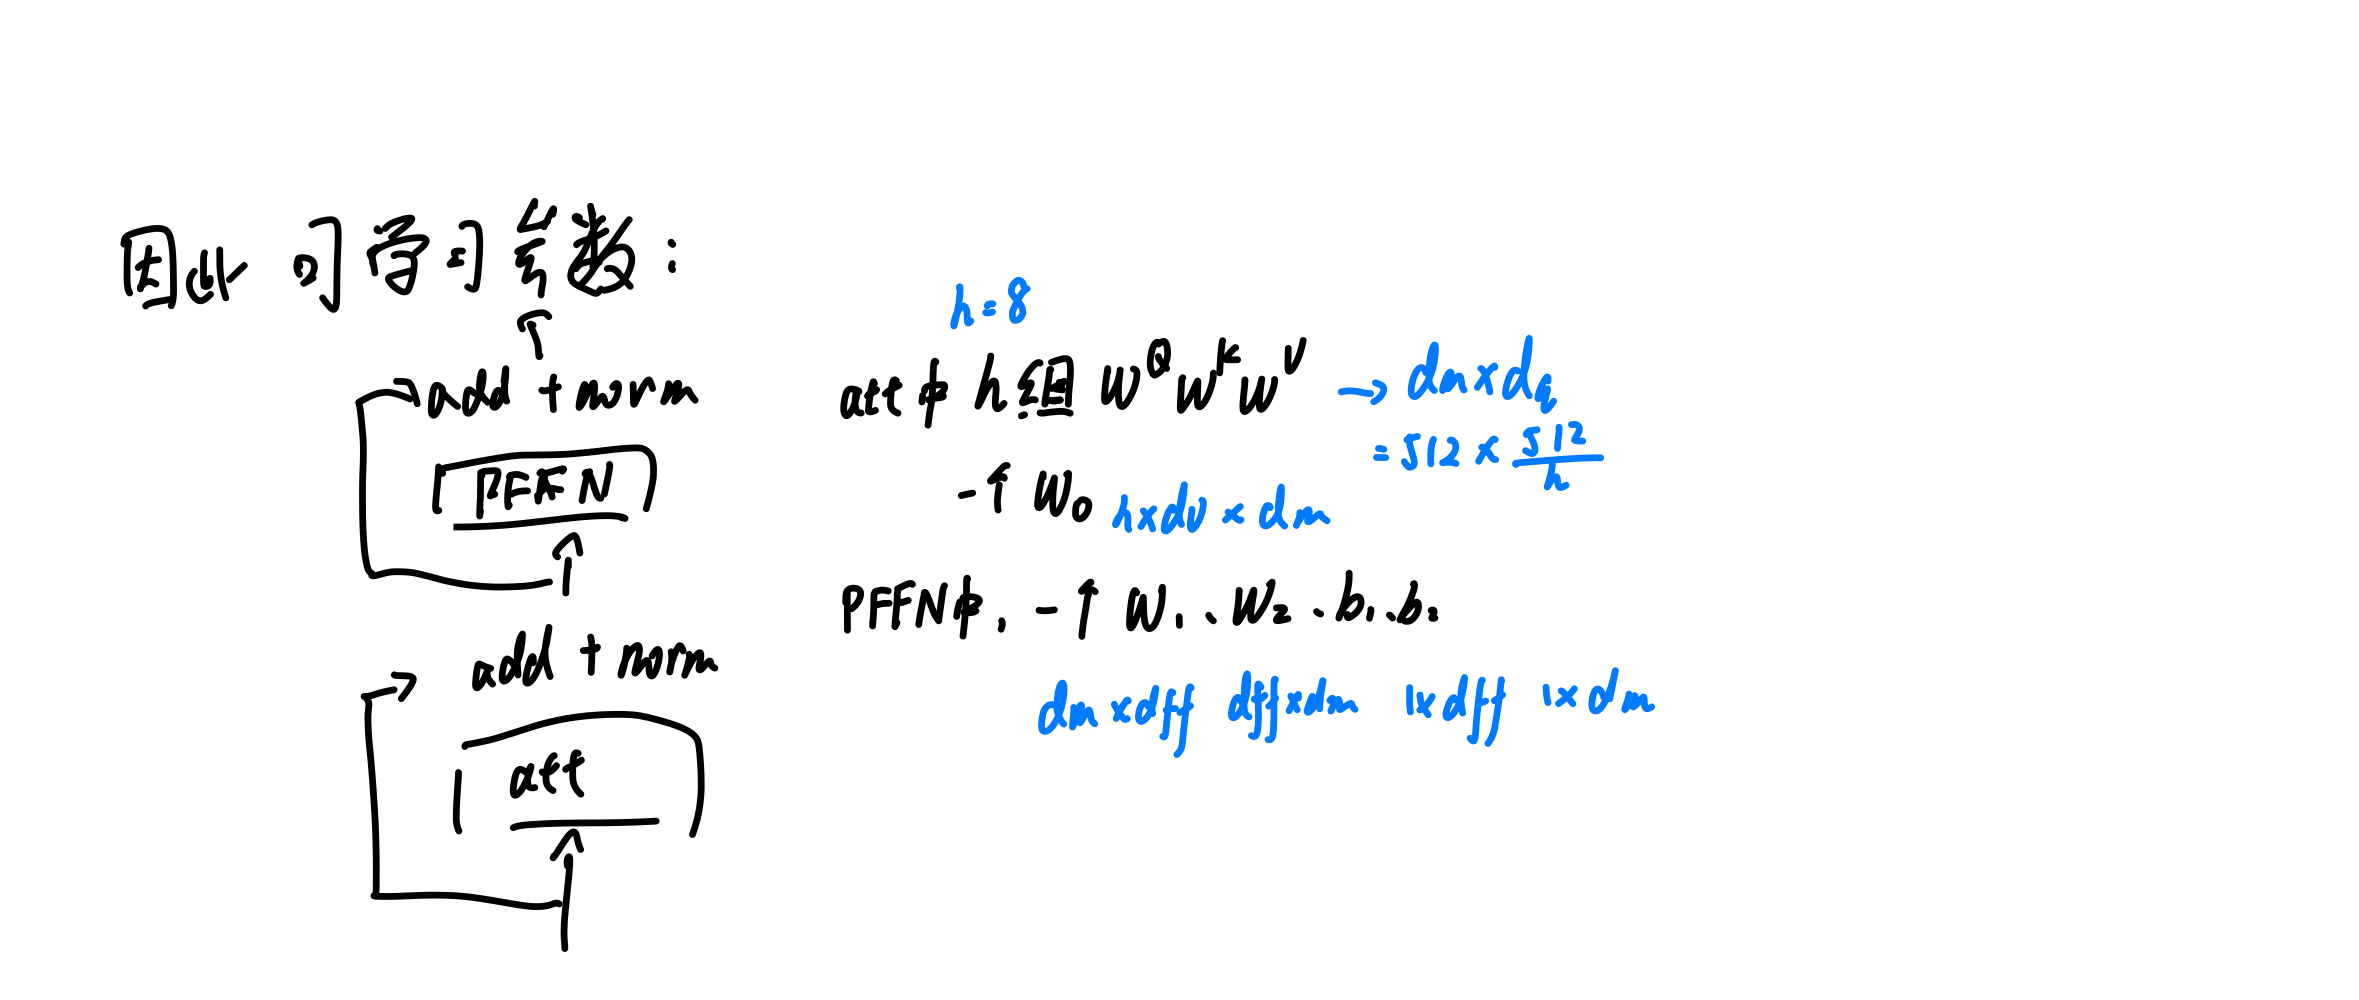 因此 可学习参数:
add + norm
PFFN
add + norm
att
h=8
att中 h组 W^Q W^K W^V → dm×dq
= 512 × 512/h
一个 W₀ h×dv × dm
PFFN中, 一个 W₁、W₂、b₁、b₂
dm×dff dff×dm 1×dff 1×dm